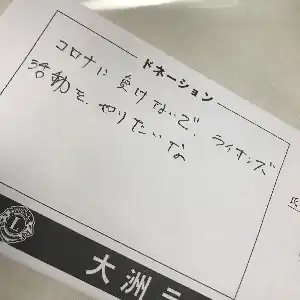 ドネーション
コロナに負けないで、ライオンズ
活動を、やりたいな
大洲ラ
L